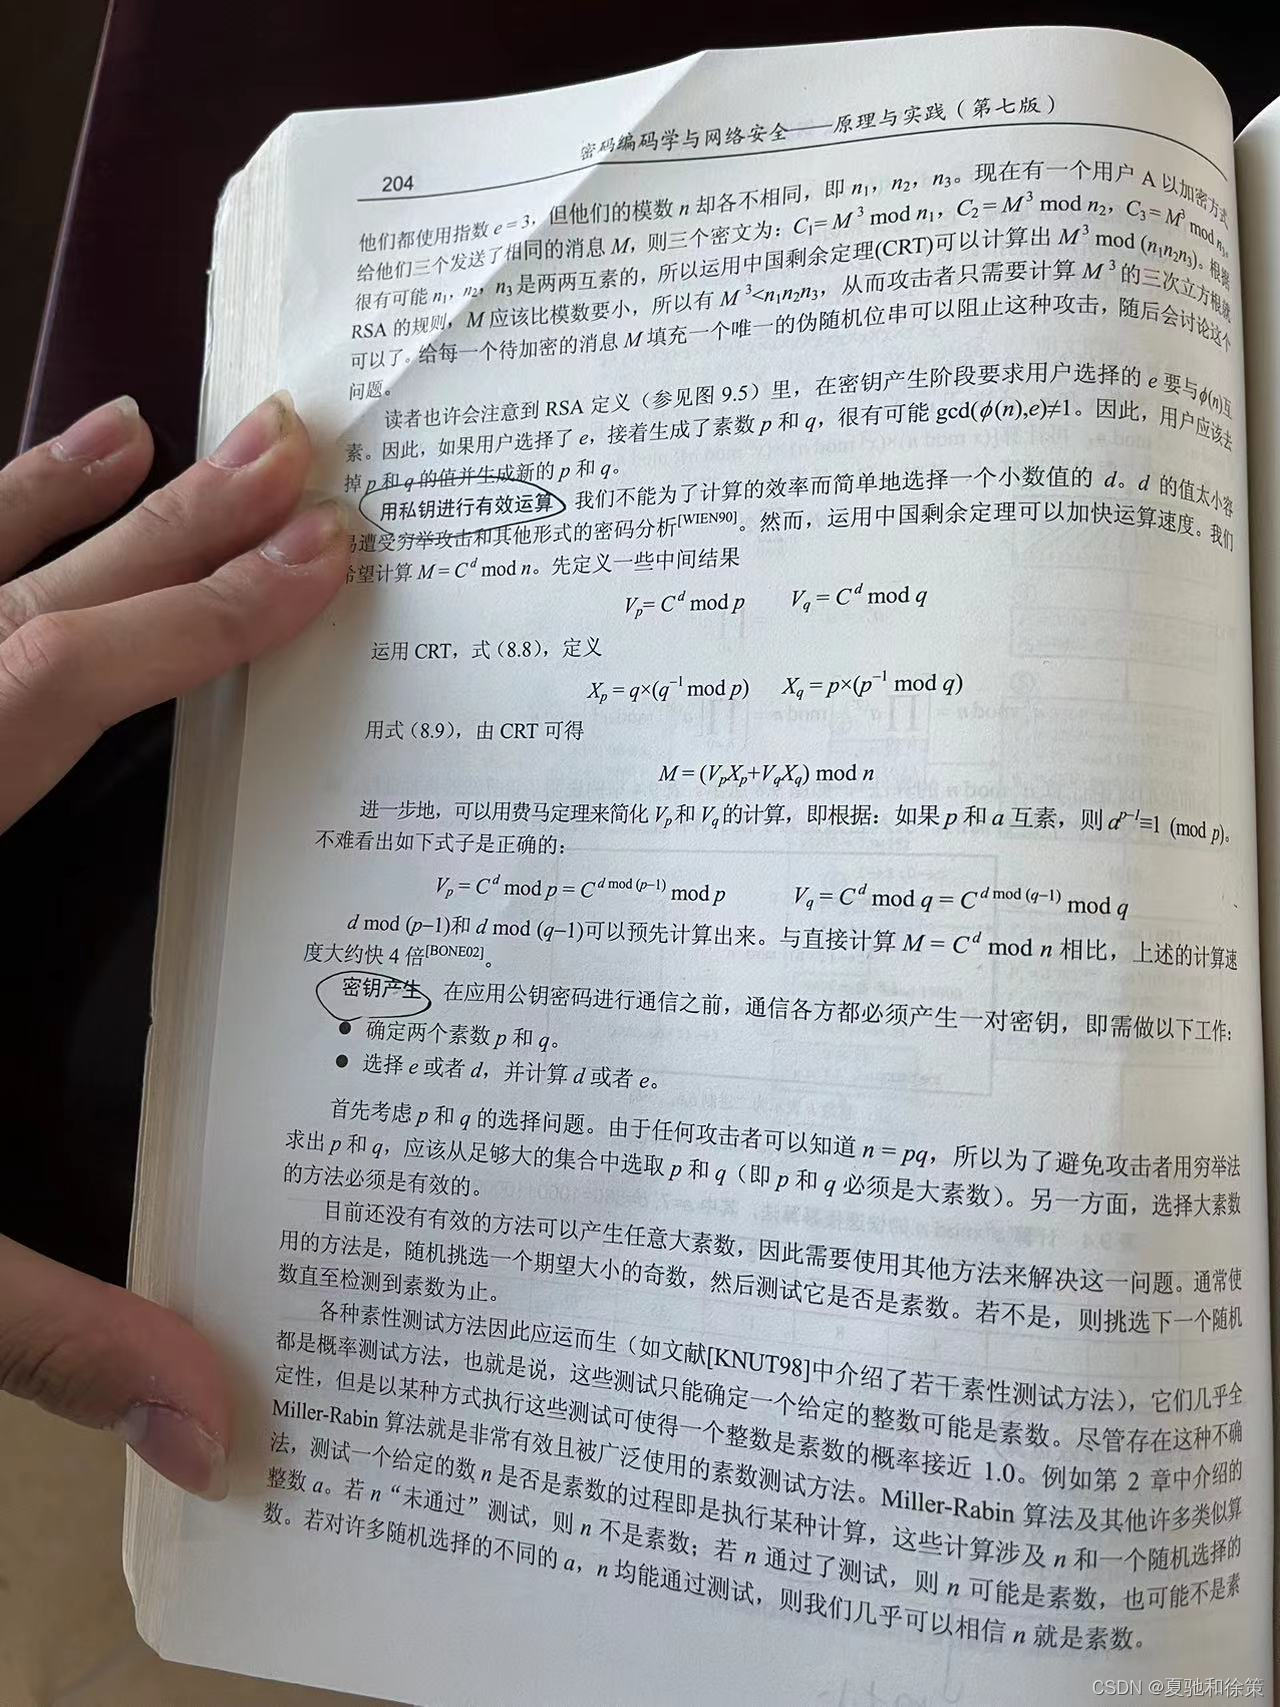 密码编码学与网络安全——原理与实践（第七版）
204
他们都使用指数 e = 3，但他们的模数 n 却各不相同，即 n₁，n₂，n₃。现在有一个用户 A 以加密方式
给他们三个发送了相同的消息 M，则三个密文为：C₁= M³ mod n₁，C₂ = M³ mod n₂，C₃ = M³ mod n₃。
很有可能 n₁，n₂，n₃ 是两两互素的，所以运用中国剩余定理(CRT)可以计算出 M³ mod (n₁n₂n₃)。根据
RSA 的规则，M 应该比模数要小，所以有 M³<n₁n₂n₃，从而攻击者只需要计算 M³ 的三次立方根就
可以了。给每一个待加密的消息 M 填充一个唯一的伪随机位串可以阻止这种攻击，随后会讨论这个
问题。
读者也许会注意到 RSA 定义（参见图 9.5）里，在密钥产生阶段要求用户选择的 e 要与 ϕ(n)互
素。因此，如果用户选择了 e，接着生成了素数 p 和 q，很有可能 gcd(ϕ(n),e)≠1。因此，用户应该去
掉 p 和 q 的值并生成新的 p 和 q。
用私钥进行有效运算 我们不能为了计算的效率而简单地选择一个小数值的 d。d 的值太小容
易遭受穷举攻击和其他形式的密码分析[WIEN90]。然而，运用中国剩余定理可以加快运算速度。我们
希望计算 M = Cᵈ mod n。先定义一些中间结果
Vₚ= Cᵈ mod p V_q = Cᵈ mod q
运用 CRT，式（8.8），定义
Xₚ = q×(q⁻¹ mod p) X_q = p×(p⁻¹ mod q)
用式（8.9），由 CRT 可得
M = (VₚXₚ+V_qX_q) mod n
进一步地，可以用费马定理来简化 Vₚ 和 V_q 的计算，即根据：如果 p 和 a 互素，则 aᵖ⁻¹≡1 (mod p)。
不难看出如下式子是正确的：
Vₚ = Cᵈ mod p = C^{d mod (p−1)} mod p V_q = Cᵈ mod q = C^{d mod (q−1)} mod q
d mod (p−1)和 d mod (q−1)可以预先计算出来。与直接计算 M = Cᵈ mod n 相比，上述的计算速
度大约快 4 倍[BONE02]。
密钥产生 在应用公钥密码进行通信之前，通信各方都必须产生一对密钥，即需做以下工作：
● 确定两个素数 p 和 q。
● 选择 e 或者 d，并计算 d 或者 e。
首先考虑 p 和 q 的选择问题。由于任何攻击者可以知道 n = pq，所以为了避免攻击者用穷举法
求出 p 和 q，应该从足够大的集合中选取 p 和 q（即 p 和 q 必须是大素数）。另一方面，选择大素数
的方法必须是有效的。
目前还没有有效的方法可以产生任意大素数，因此需要使用其他方法来解决这一问题。通常使
用的方法是，随机挑选一个期望大小的奇数，然后测试它是否是素数。若不是，则挑选下一个随机
数直至检测到素数为止。
各种素性测试方法因此应运而生（如文献[KNUT98]中介绍了若干素性测试方法），它们几乎全
都是概率测试方法，也就是说，这些测试只能确定一个给定的整数可能是素数。尽管存在这种不确
定性，但是以某种方式执行这些测试可使得一个整数是素数的概率接近 1.0。例如第 2 章中介绍的
Miller-Rabin 算法就是非常有效且被广泛使用的素数测试方法。Miller-Rabin 算法及其他许多类似算
法，测试一个给定的数 n 是否是素数的过程即是执行某种计算，这些计算涉及 n 和一个随机选择的
整数 a。若 n“未通过”测试，则 n 不是素数；若 n 通过了测试，则 n 可能是素数，也可能不是素
数。若对许多随机选择的不同的 a，n 均能通过测试，则我们几乎可以相信 n 就是素数。
CSDN @夏驰和徐策